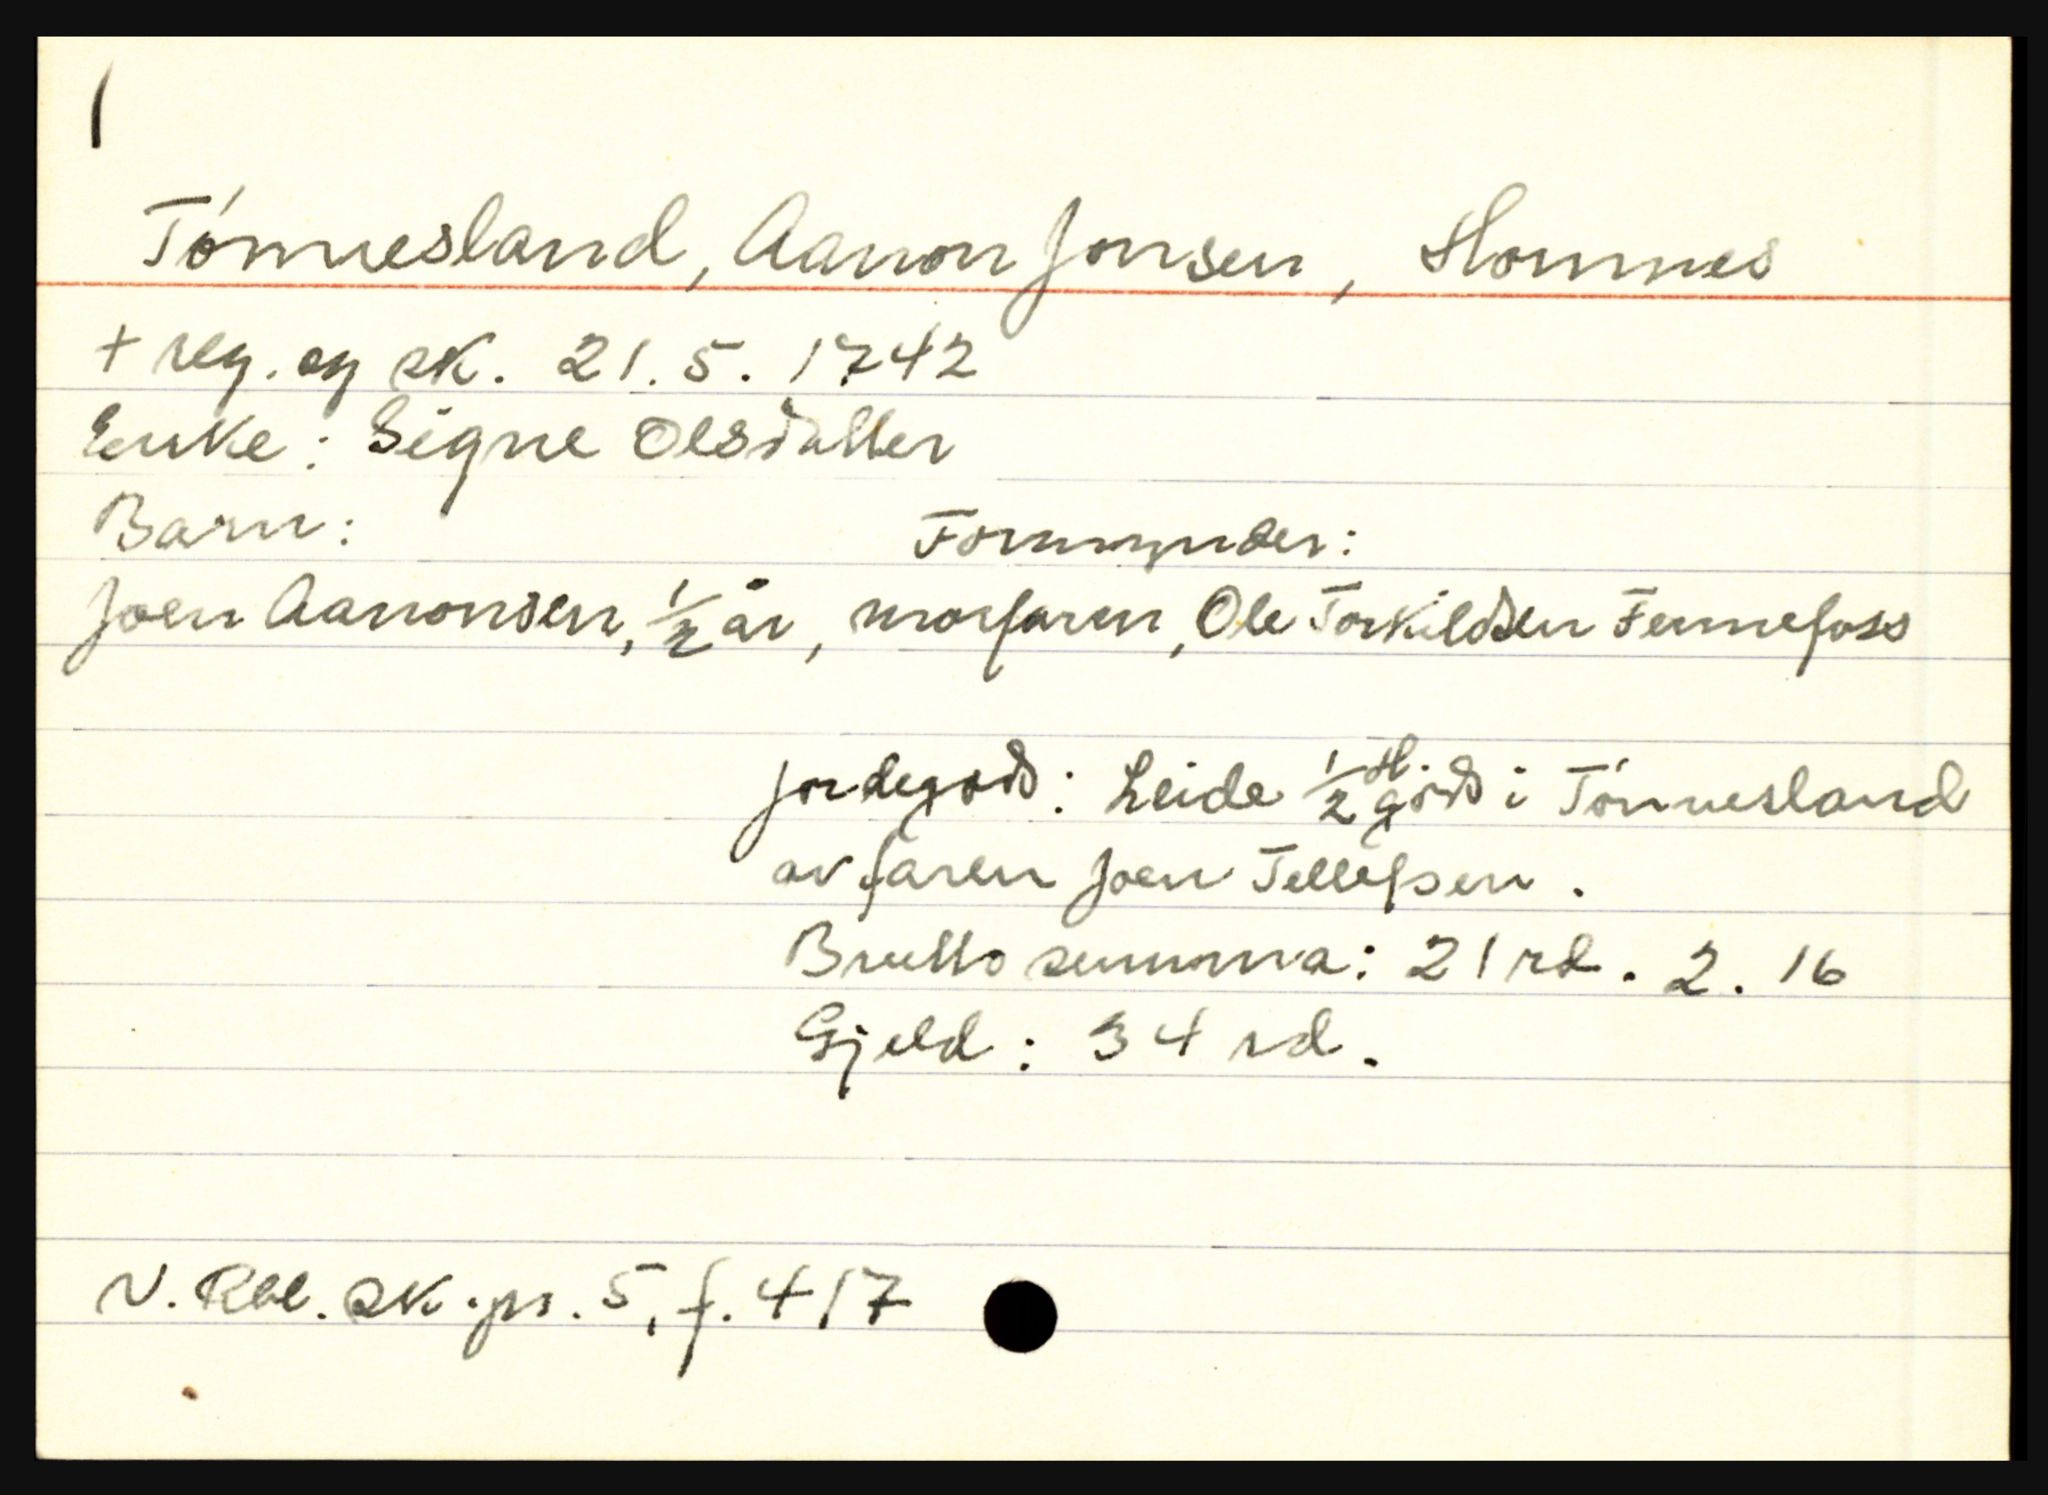 1
Tónnesland, Aanon Jonsen, Hornnes
+ reg. og sk. 21.5.1742
Enke: Signe Olsdatter
Barn: Formynder:
Joen Aanonsen, 1/2 år, morfaren, Ole Torkildsen Fennefoss
Jordegods: Leide 1/2 H. gods i Tónnesland
av faren Joen Tellefsen.
Brutto summa: 21 rd. 2. 16
Gjeld: 34 rd.
N. Rbl. sk. pr. 5, f. 417